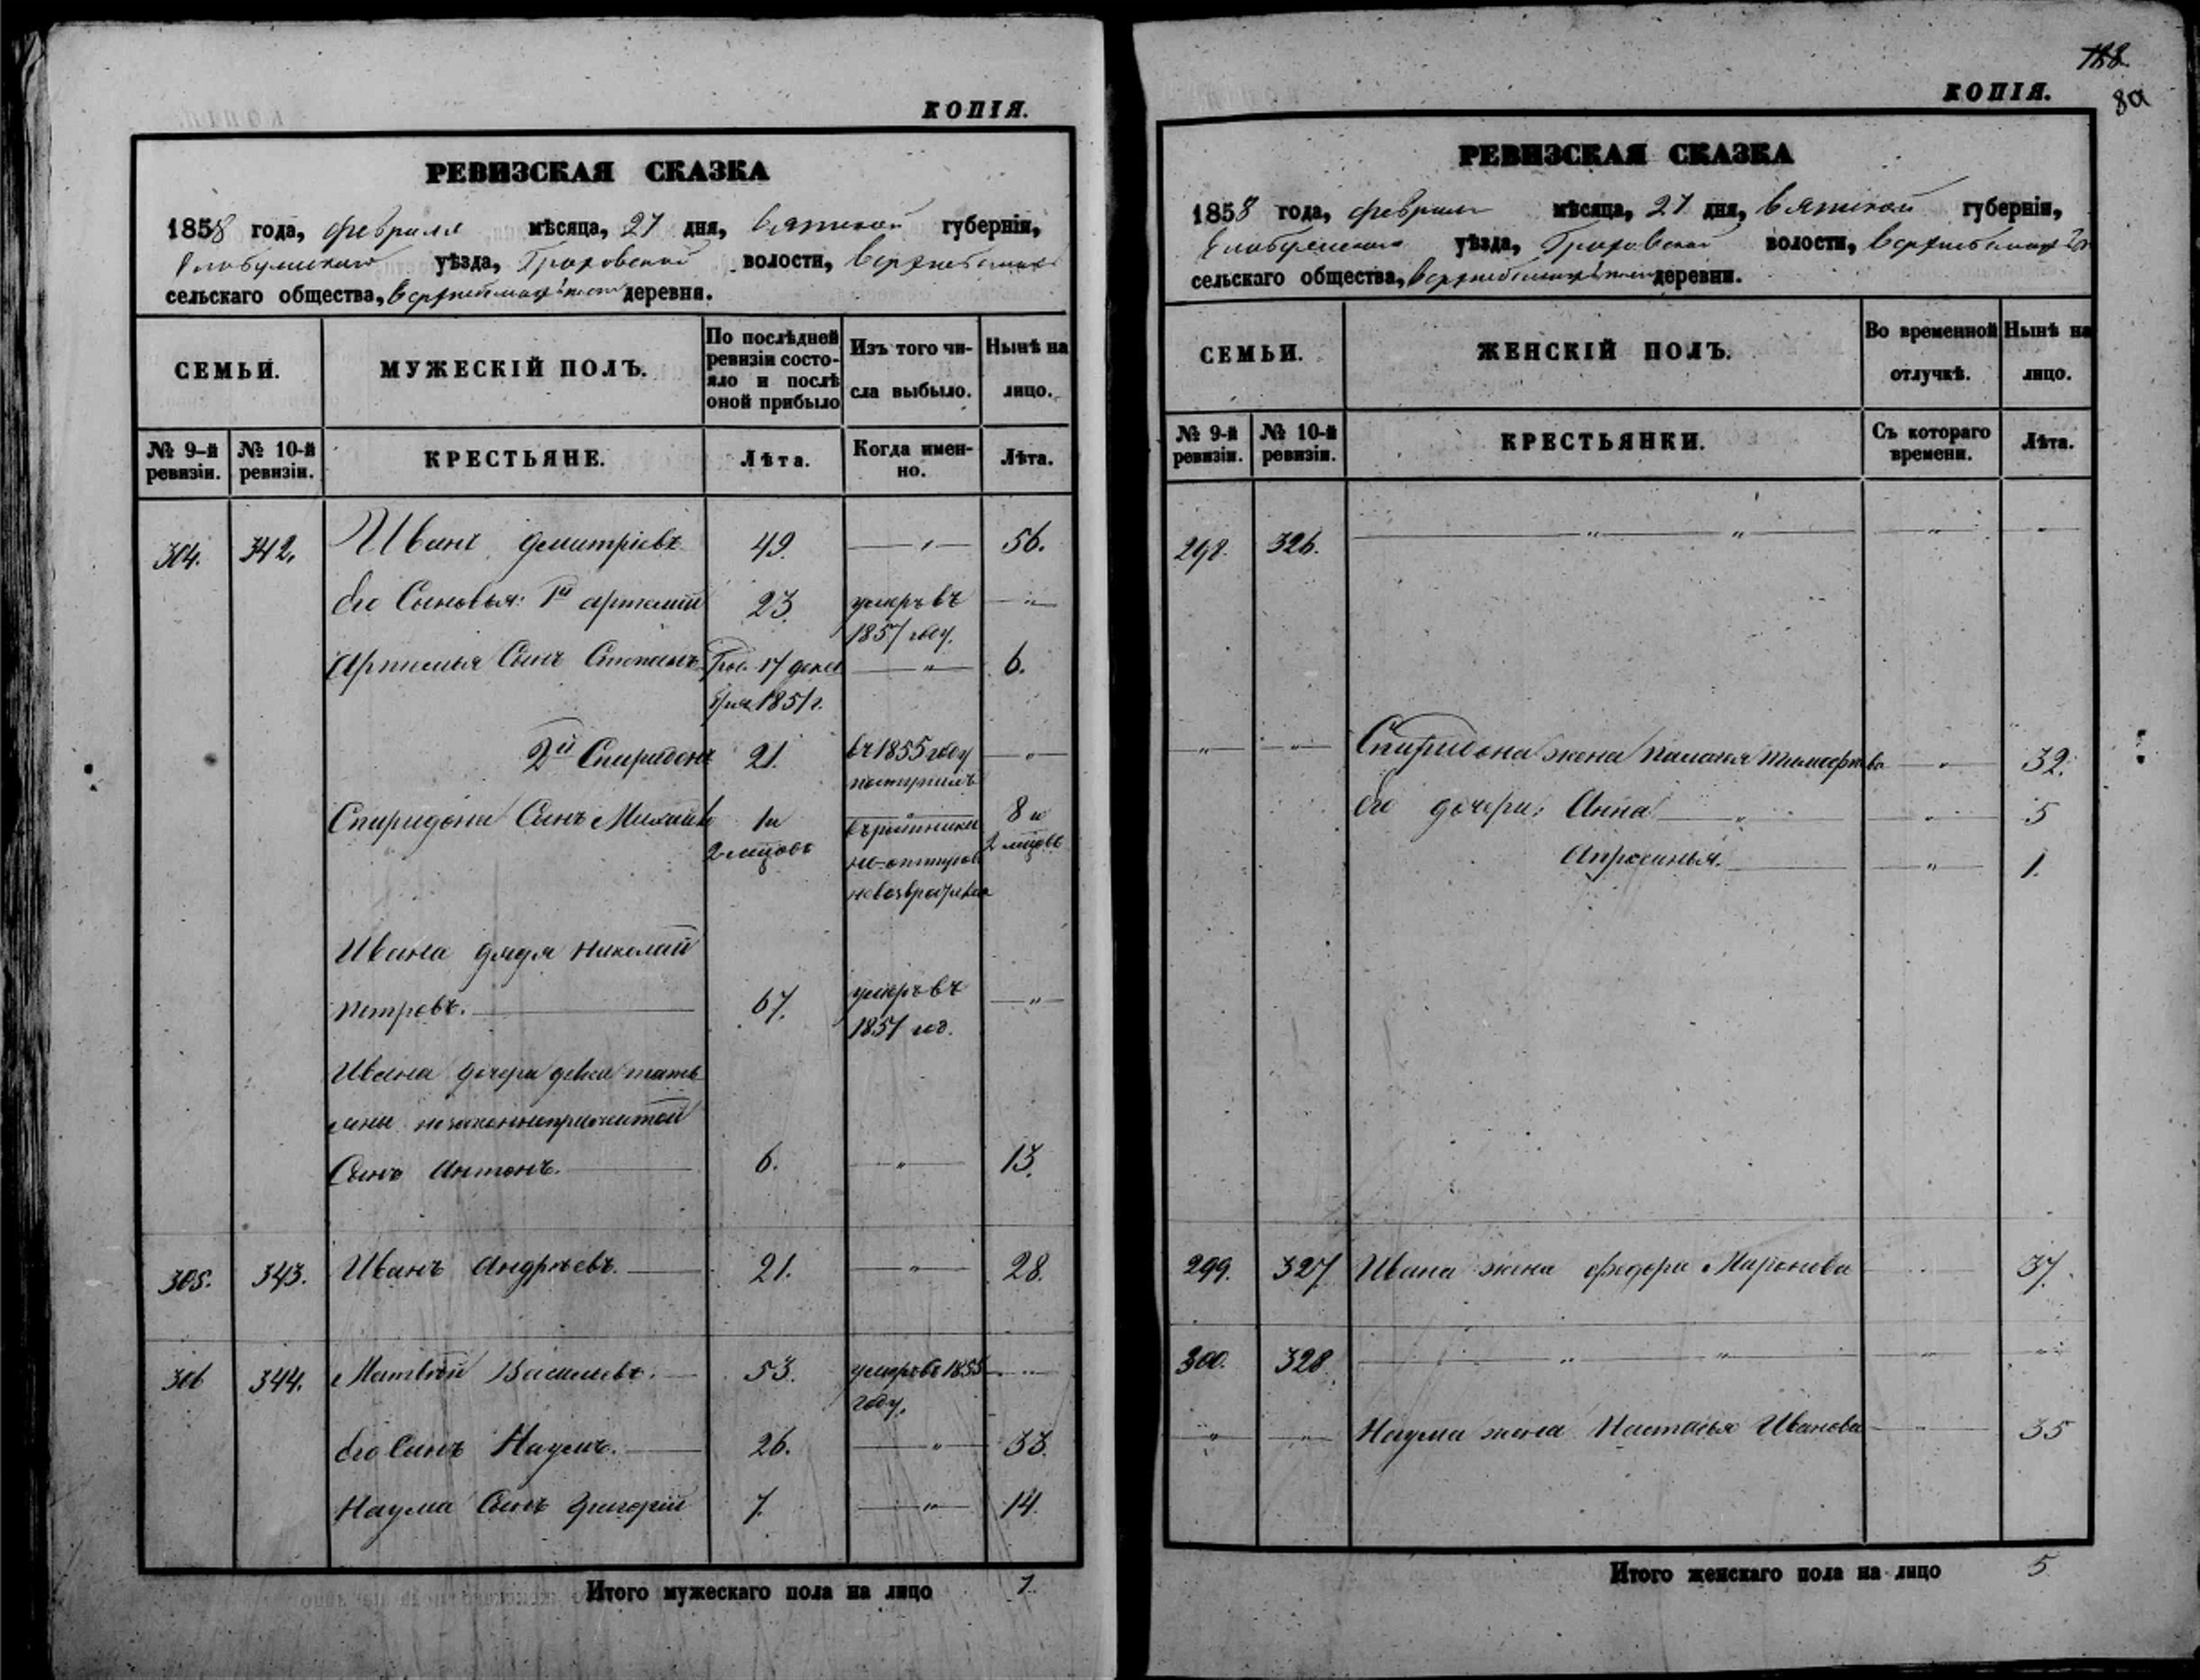 КОПІЯ.
РЕВИЗСКАЯ СКАЗКА
1858 года, февраля мѣсяца, 27 дня, Вятской губерніи,
Елабужскаго уѣзда, Граховской волости,
сельскаго общества, деревня.
СЕМЬИ.
МУЖЕСКІЙ ПОЛЪ.
По послѣдней ревизіи состо-
яло и послѣ
оной прибыло
Изъ того чи-
сла выбыло.
Нынѣ на
лицо.
№ 9-й
ревизіи.
№ 10-й
ревизіи.
КРЕСТЬЯНЕ.
Лѣта.
Когда имен-
но.
Лѣта.
304. 342. Иванъ Дмитріевъ 49. — „ — 56.
его Сыновья: 1й Артемій 23. умеръ въ — „ —
1857 году.
Артемья Сынъ Степанъ Род. 17 дека — „ — 6.
бря 1851 г.
2й Спиридонъ 21. въ 1855 году — „ —
поступилъ
Спиридона Сынъ Михайло 1 и въ ратники 8 и
2 месецовъ 2 месецовъ
невозвратился
Ивана дядя Николай
Петровъ. 67. умеръ въ — „ —
1857 год.
Ивана дочери девки Тать
яны незаконноприжитой
Сынъ Антонъ. 6. — „ — 13.
305. 343. Иванъ Андрѣевъ. 21. — „ — 28.
306 344. Матвѣй Васильевъ. 53. умеръ въ 1855 — „ —
году.
его Сынъ Наумъ. 26. — „ — 33.
Наума Сынъ Григорій 7. — „ — 14.
Итого мужескаго пола на лицо 7.
188
8а
КОПІЯ.
РЕВИЗСКАЯ СКАЗКА
1858 года, февраля мѣсяца, 27 дня, Вятской губерніи,
Елабужскаго уѣзда, Граховской волости,
сельскаго общества, деревни.
СЕМЬИ.
ЖЕНСКІЙ ПОЛЪ.
Во временной
отлучкѣ.
Нынѣ на
лицо.
№ 9-й
ревизіи.
№ 10-й
ревизіи.
КРЕСТЬЯНКИ.
Съ котораго
времени.
Лѣта.
298. 326. — „ — „ — — „ — „
— „ — — „ — Спиридона жена Палагея Тимофеева — „ — 32.
его дочери: Анна — „ — — „ — 5
Апросинья. — „ — 1.
299. 327 Ивана жена Федора Миронова — „ — 37.
300. 328 — „ — „ — — „ — — „ —
— „ — — „ — Наума жена Настасья Иванова — „ — 35
Итого женскаго пола на лицо 5